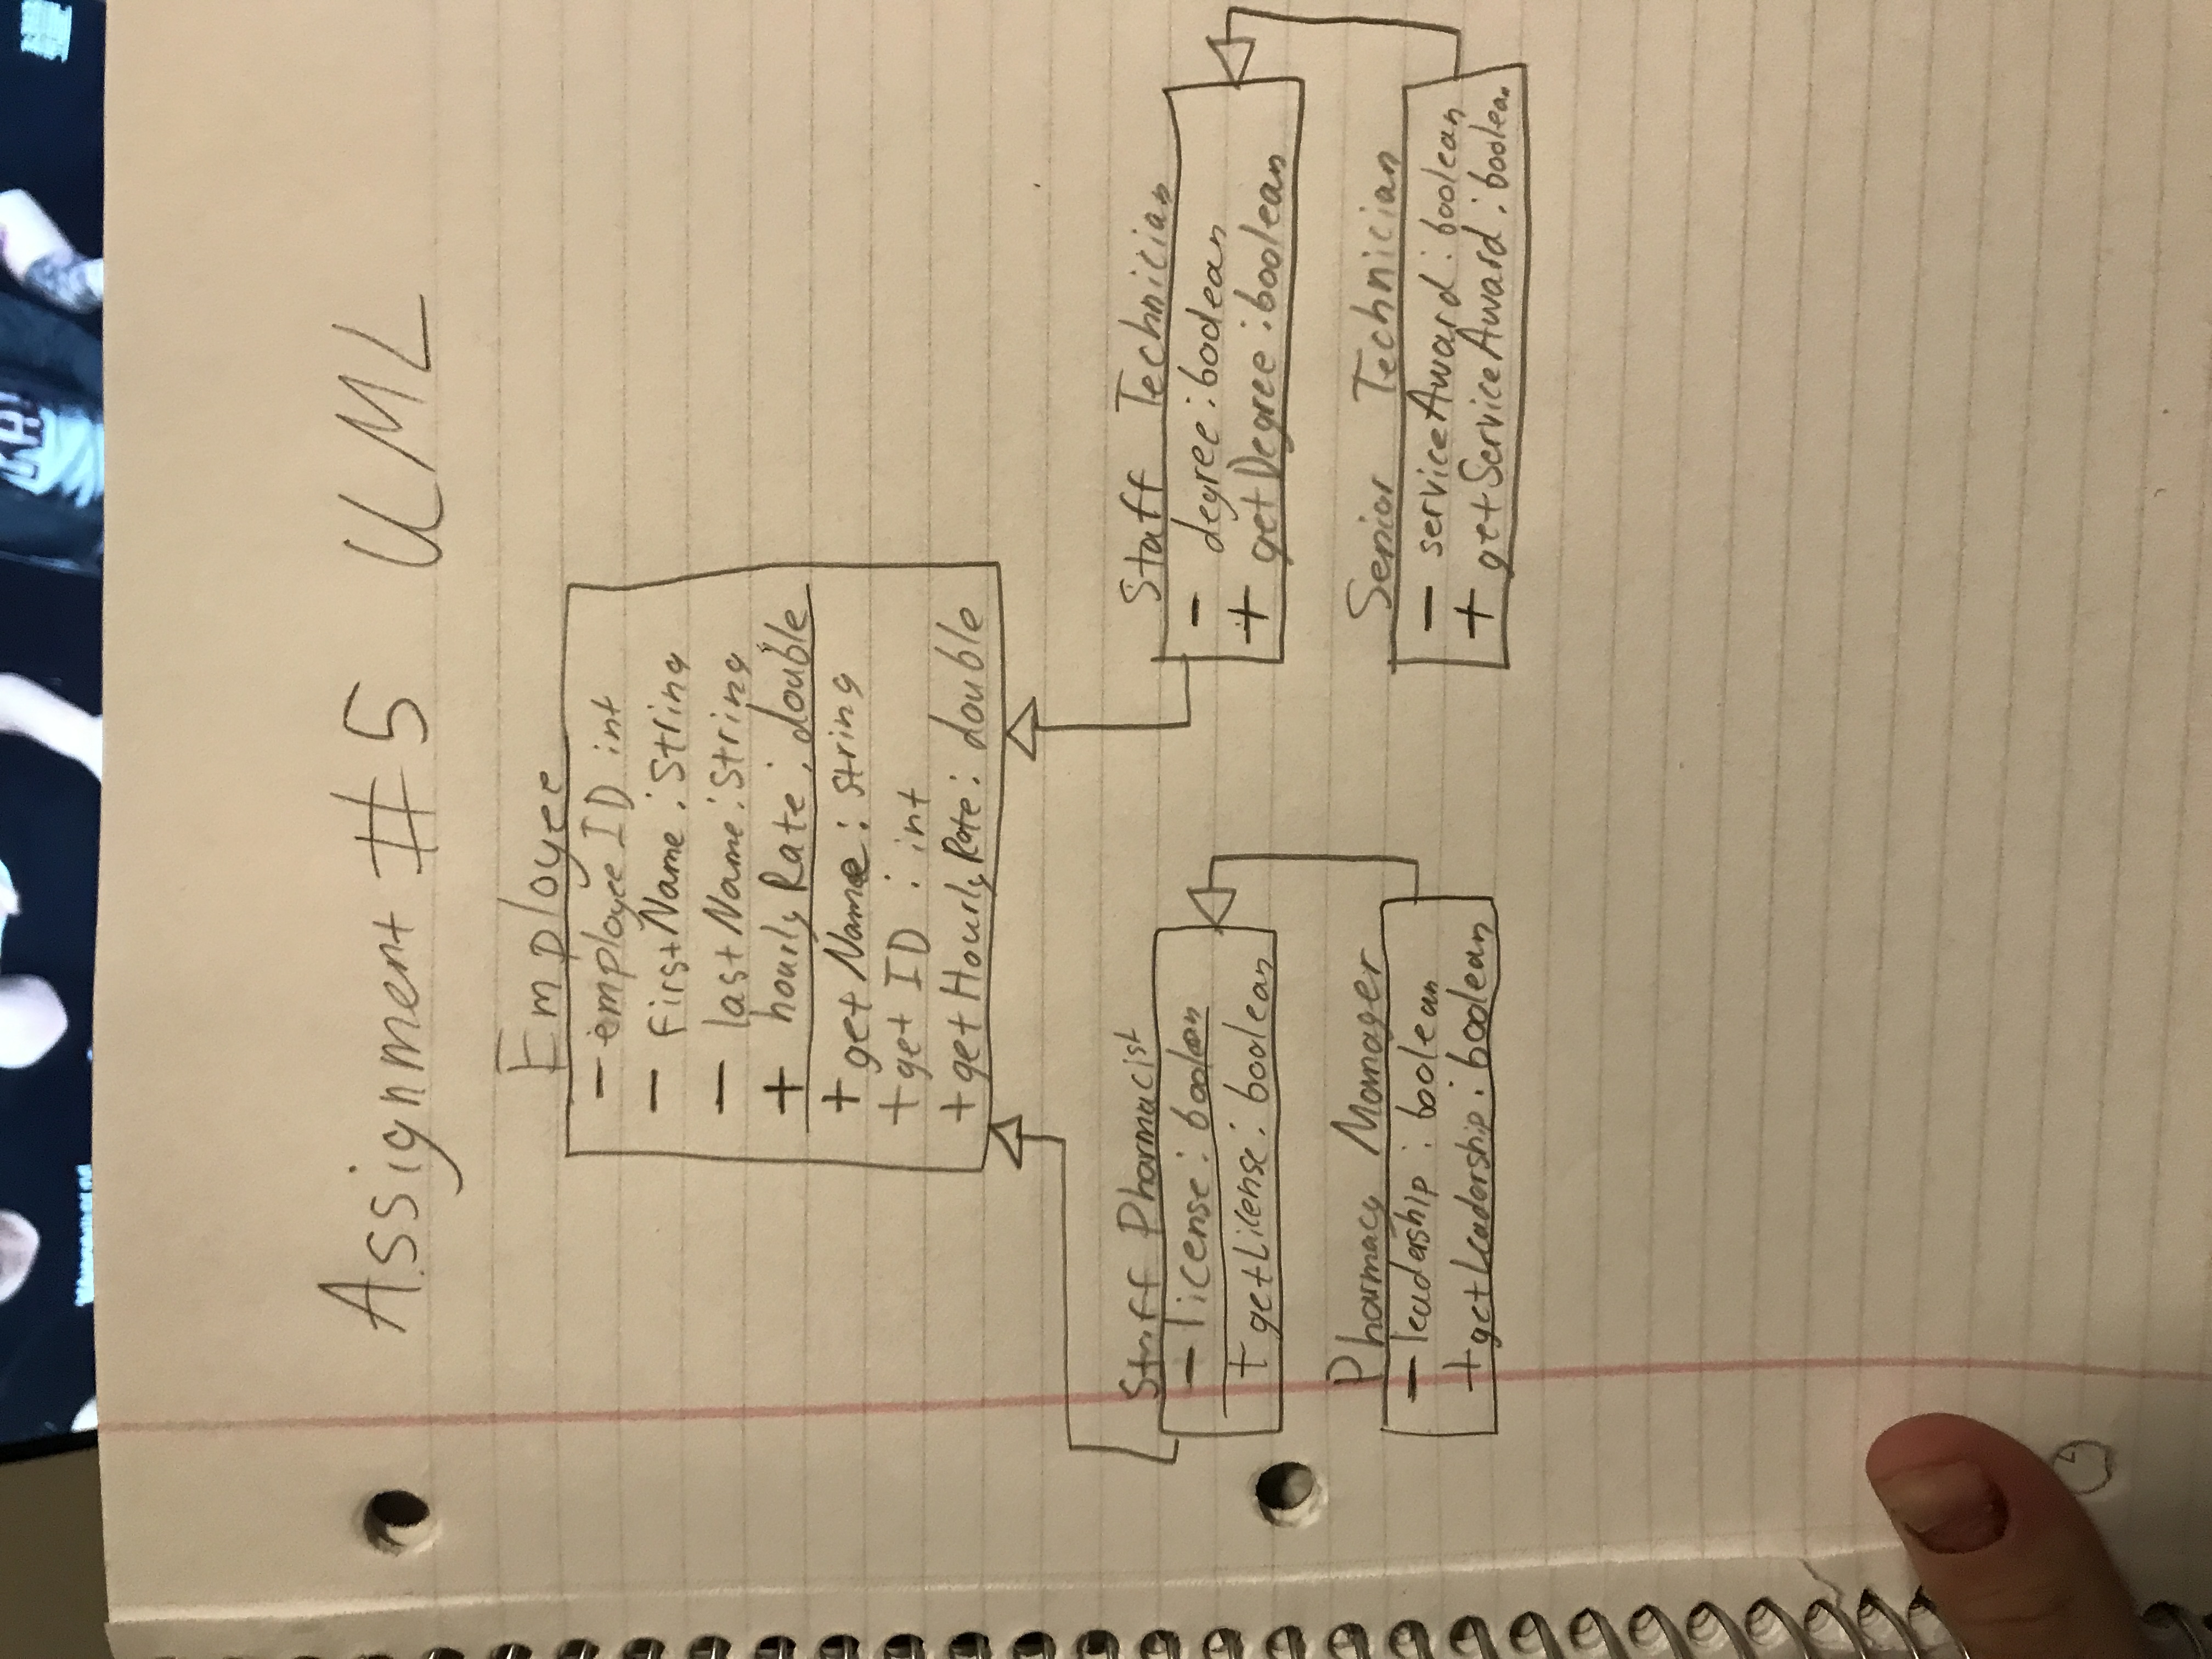 Assignment #5 UML
Employee
- employee ID int
- firstName : String
- lastName : String
+ hourlyRate : double
+ getName : string
+ get ID : int
+ getHourlyRate : double
Staff Pharmacist
- license : boolean
+ getLicense : boolean
Pharmacy Manager
- leadership : boolean
+ getLeadership : boolean
Staff Technician
- degree : boolean
+ getDegree : boolean
Senior Technician
- serviceAward : boolean
+ getServiceAward : boolean